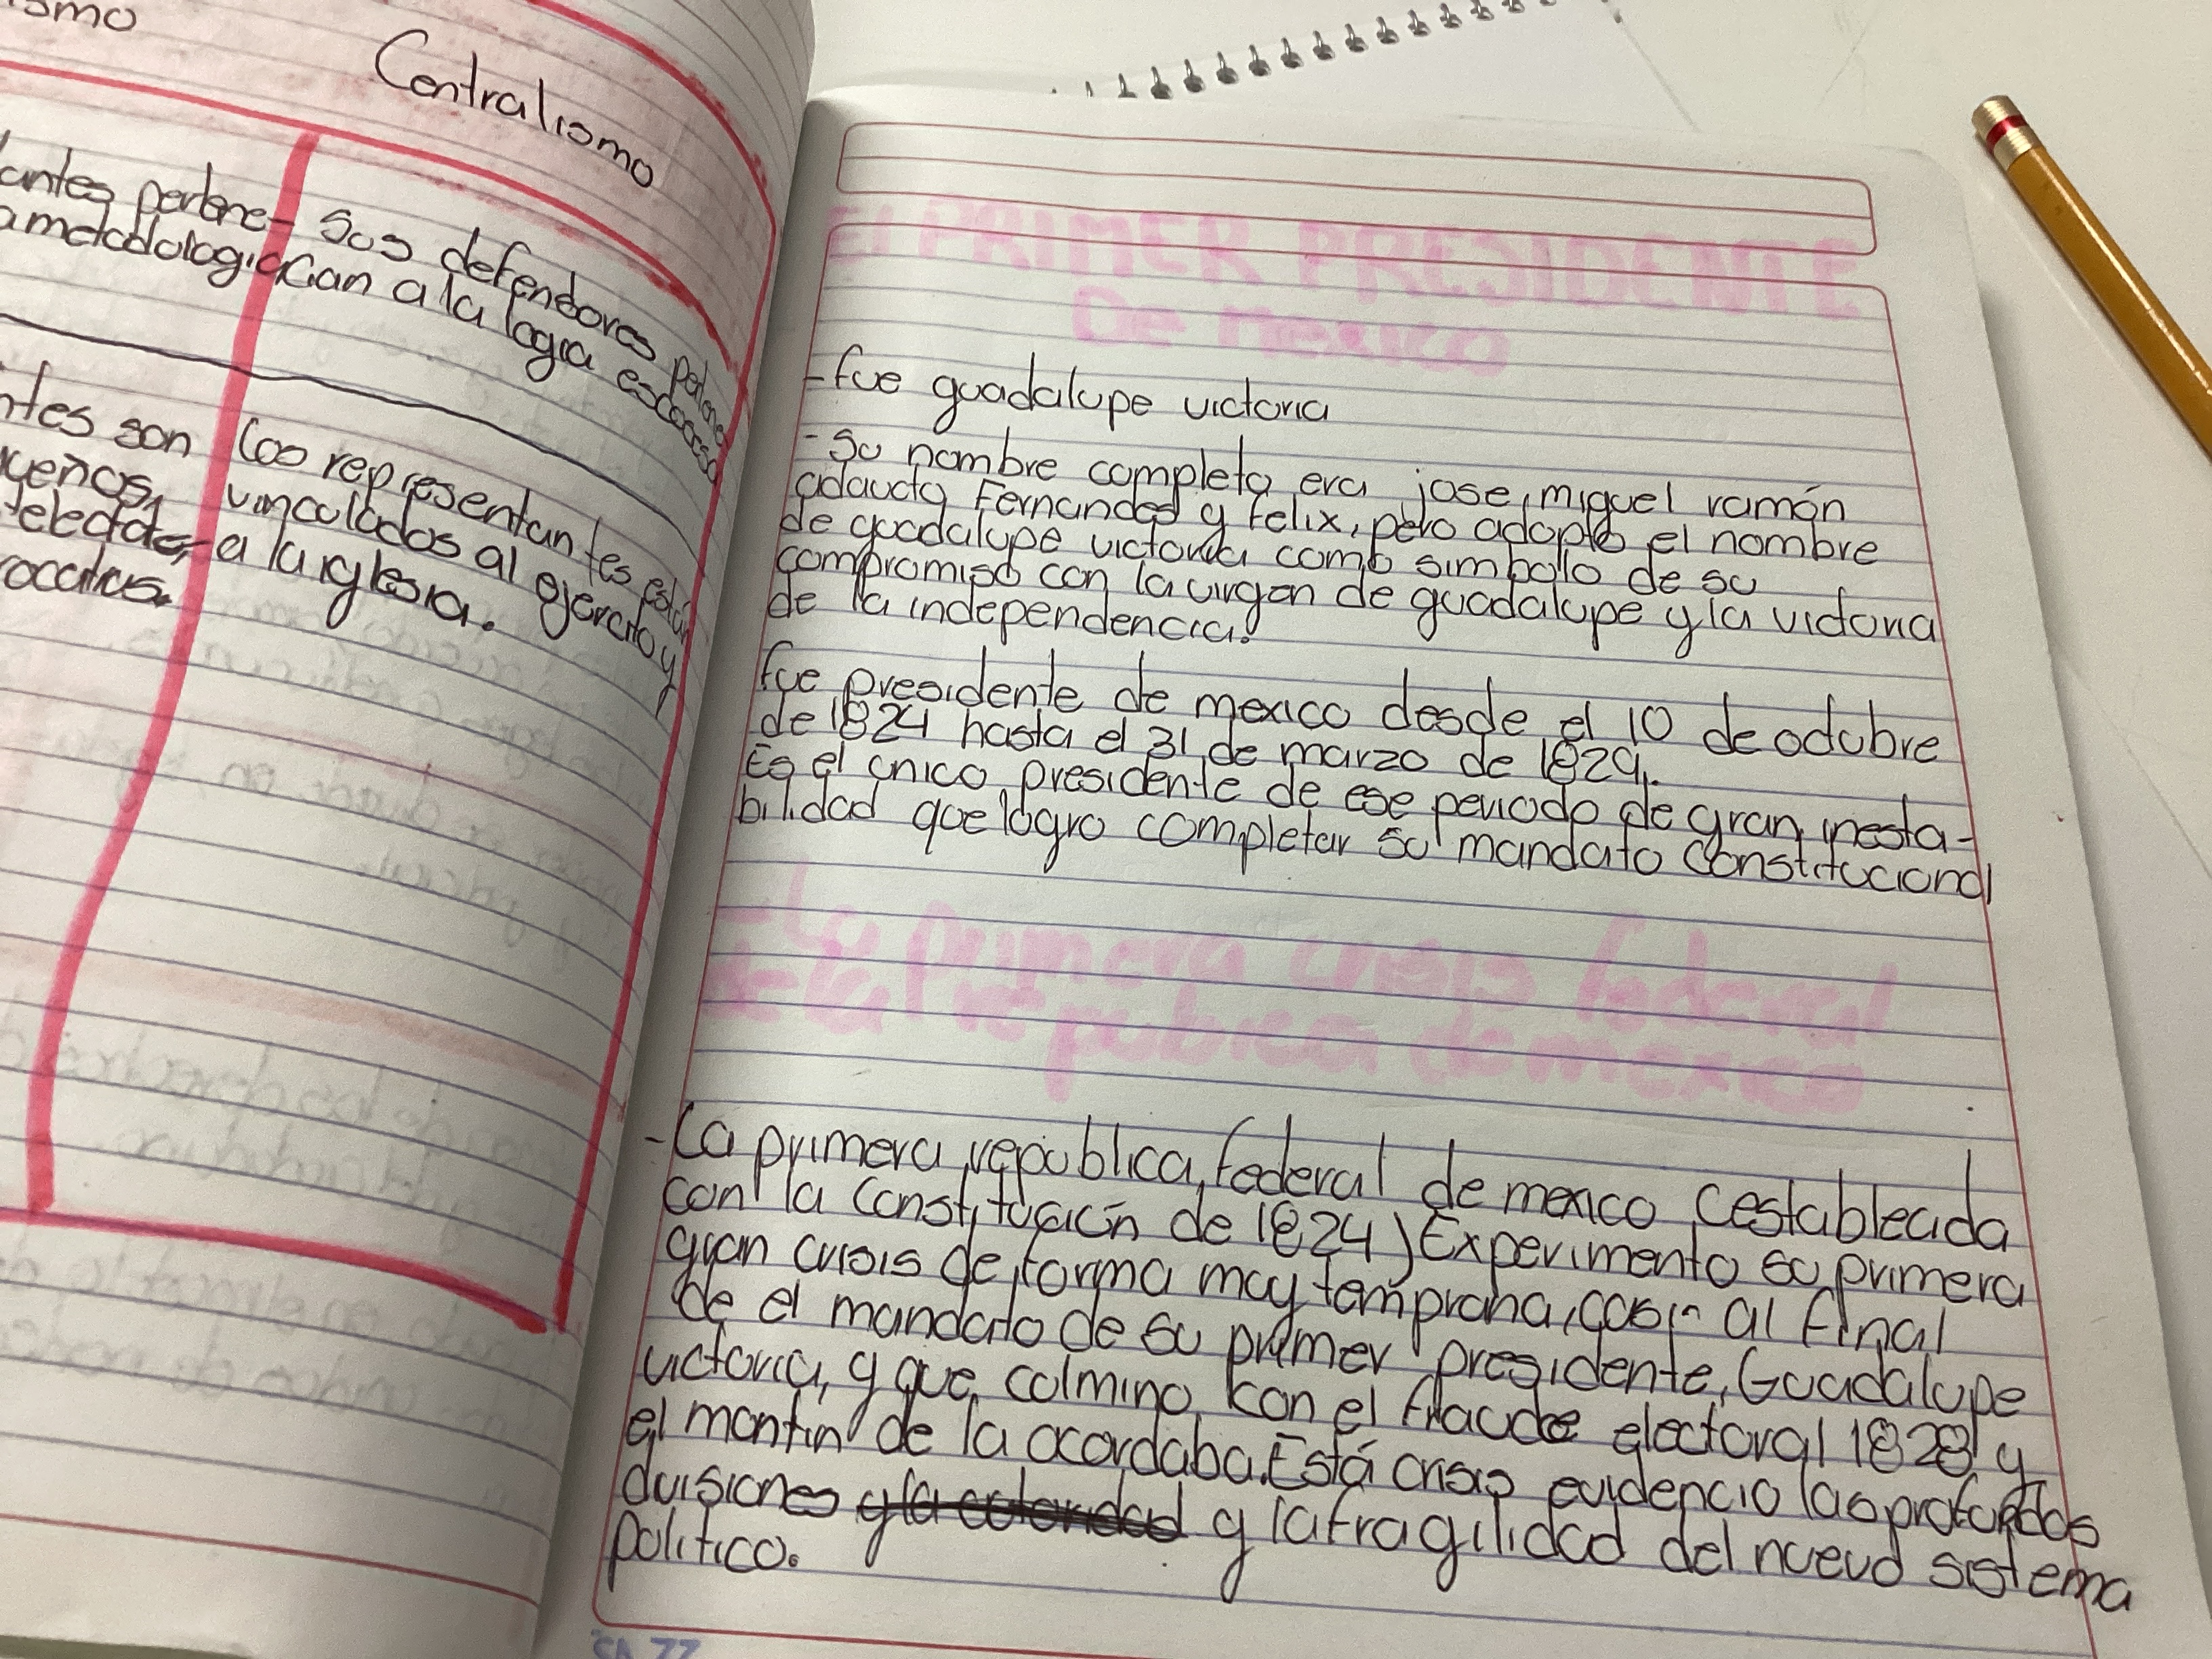 Centralismo
antes pertene- Sus defendores pertene
a metodologia can a la logia escocesa
ntes son Los representantes están
ueños, vinculados al ejercito y
a la iglesia.
El PRIMER PRESIDENTE
De Mexico
-fue guadalupe victoria
-Su nombre completo era jose miguel ramón
adaucto Fernandes y felix, pero adopto el nombre
de guadalupe victoria como simbolo de su
compromiso con la virgen de guadalupe y la victoria
de la independencia.
fue presidente de mexico desde el 10 de octubre
de 1824 hasta el 31 de marzo de 1829.
Es el unico presidente de ese periodo de gran inesta-
bilidad que logro completar su mandato constitucional
-La primera crisis federal
de la Republica de mexico
-La primera republica federal de mexico (establecida
con la Constitución de 1824) Experimento su primera
gran crisis de forma muy temprana, casi al final
de el mandato de su primer presidente, Guadalupe
victoria, y que colmino con el fraude electoral 1828 y
el montin de la acordaba. Está crisis evidencio las profundas
divisiones y la fragilidad del nuevo sistema
politico.